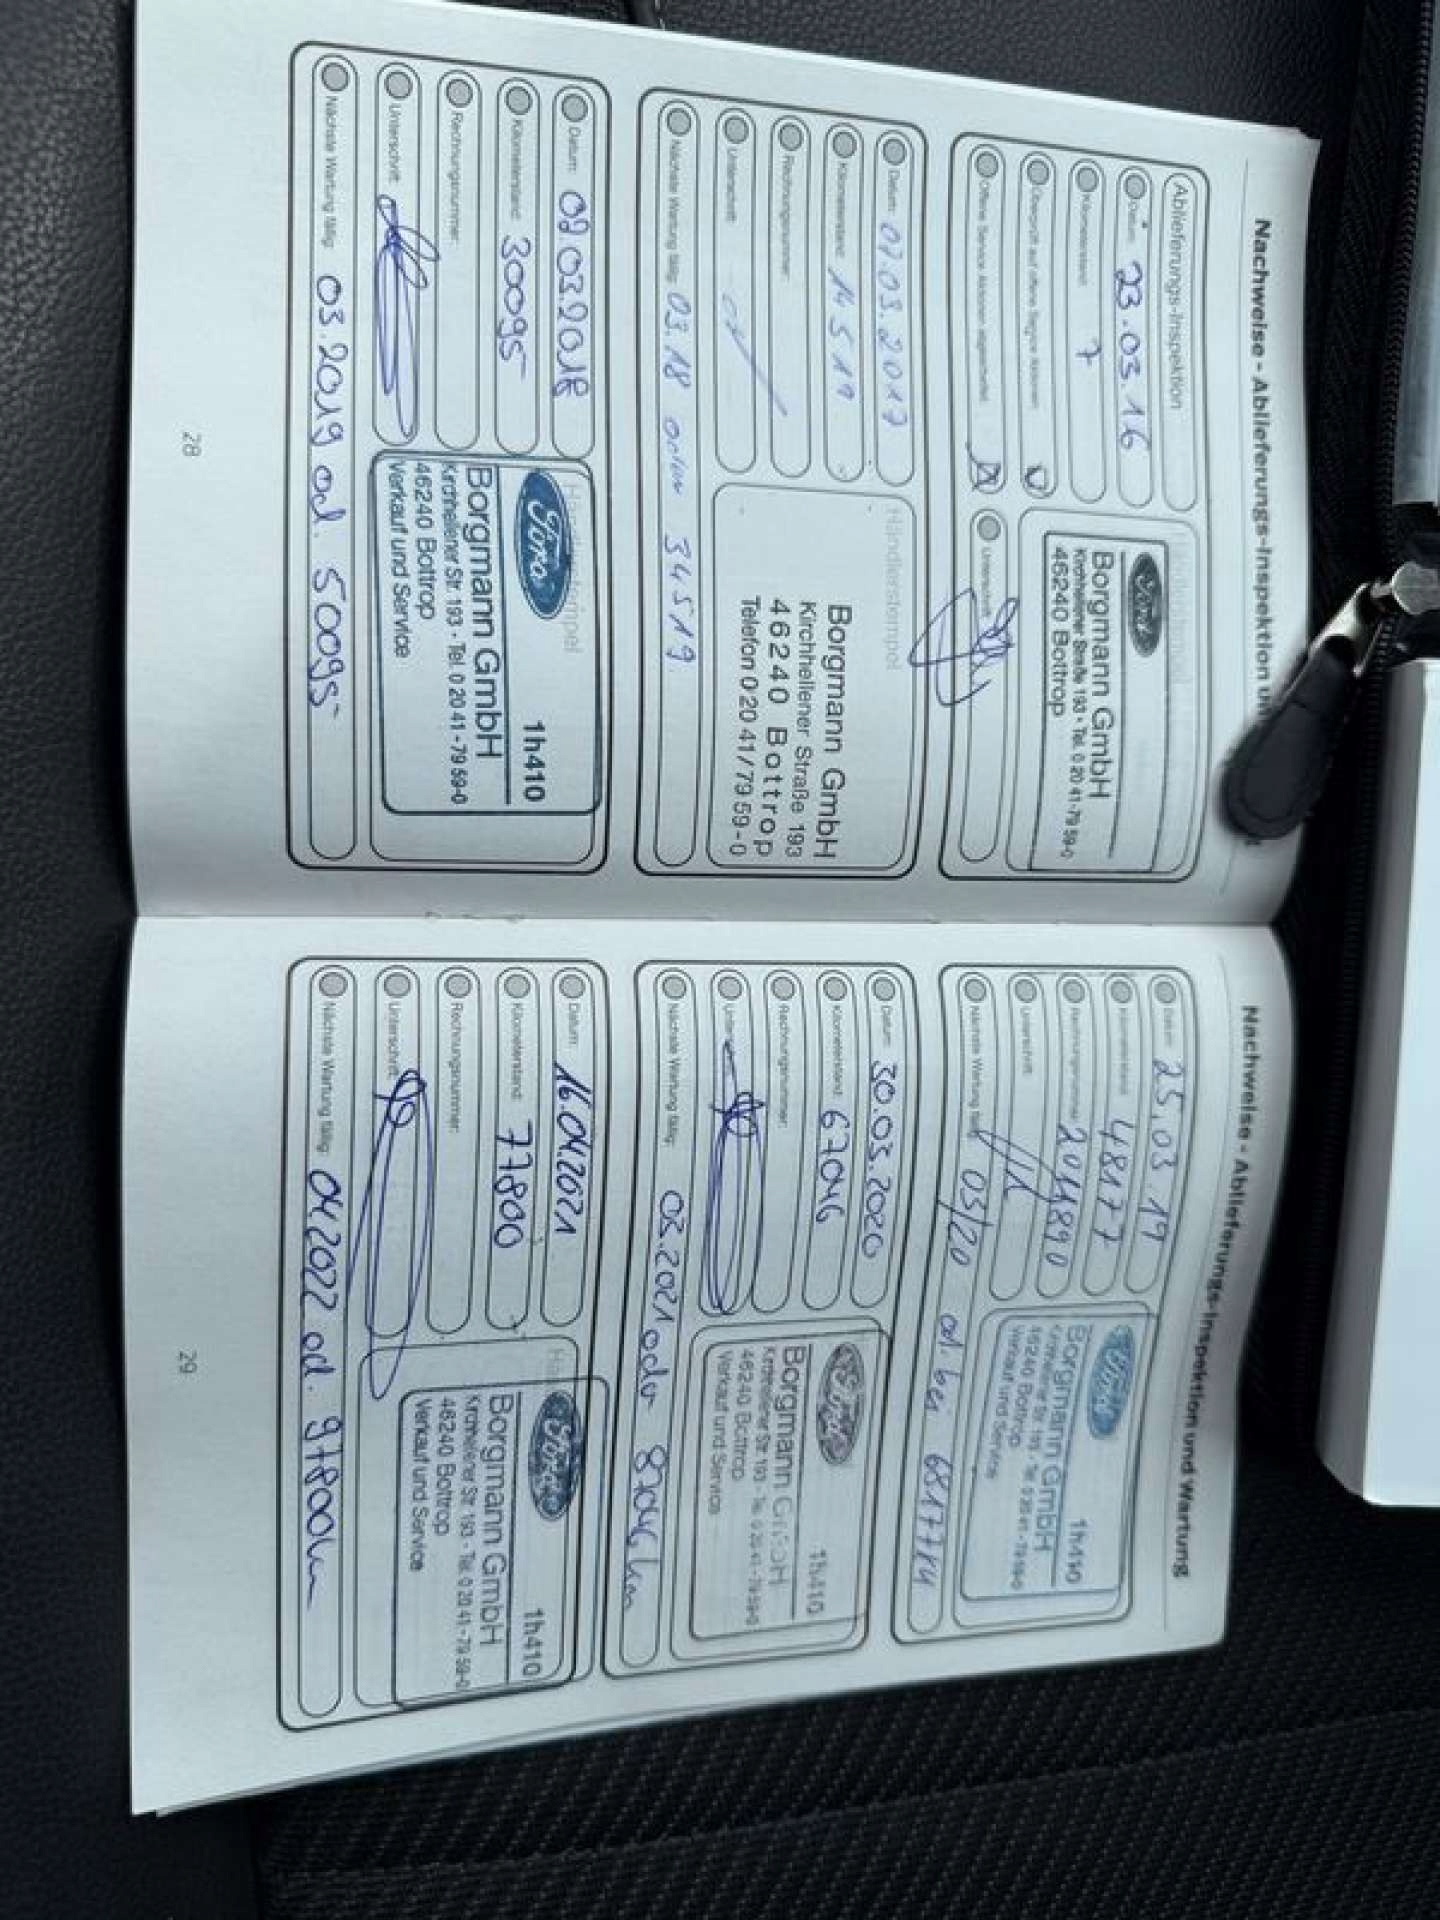 Nachweise - Ablieferungs-Inspektion un
Ablieferungs-Inspektion
Datum: 23.03.16
Kilometerstand: 7
Überprüft auf offene Service Aktionen:
Offene Service Aktionen abgearbeitet:
Unterschrift:
Ford
Borgmann GmbH
Kirchhellener Straße 193 · Tel. 0 20 41-79 59-0
46240 Bottrop
Datum: 07.03.2017
Kilometerstand: 14519
Rechnungsnummer:
Unterschrift:
Nächste Wartung fällig: 03.18 oder 34519
Händlerstempel
Borgmann GmbH
Kirchhellener Straße 193
46240 Bottrop
Telefon 0 20 41 / 79 59 - 0
Datum: 02.03.2018
Kilometerstand: 30095
Rechnungsnummer:
Unterschrift:
Nächste Wartung fällig: 03.2019 od. 50095
Händlerstempel
Ford
1h410
Borgmann GmbH
Kirchhellener Str. 193 · Tel. 0 20 41 - 79 59-0
46240 Bottrop
Verkauf und Service
28
Nachweise - Ablieferungs-Inspektion und Wartung
Datum: 25.03.19
Kilometerstand: 48177
Rechnungsnummer: 2014890
Unterschrift:
Nächste Wartung fällig: 03/20 od. bei 68177
Ford
1h410
Borgmann GmbH
Kirchhellener Str. 193 · Tel. 0 20 41 - 79 59-0
46240 Bottrop
Verkauf und Service
Datum: 30.03.2020
Kilometerstand: 67046
Rechnungsnummer:
Unterschrift:
Nächste Wartung fällig: 03.2021 oder 87046 km
Ford
1h410
Borgmann GmbH
Kirchhellener Str. 193 · Tel. 0 20 41 - 79 59-0
46240 Bottrop
Verkauf und Service
Datum: 16.04.2021
Kilometerstand: 77800
Rechnungsnummer:
Unterschrift:
Nächste Wartung fällig: 04.2022 od. 97800km
Ford
1h410
Borgmann GmbH
Kirchhellener Str. 193 · Tel. 0 20 41 - 79 59-0
46240 Bottrop
Verkauf und Service
29